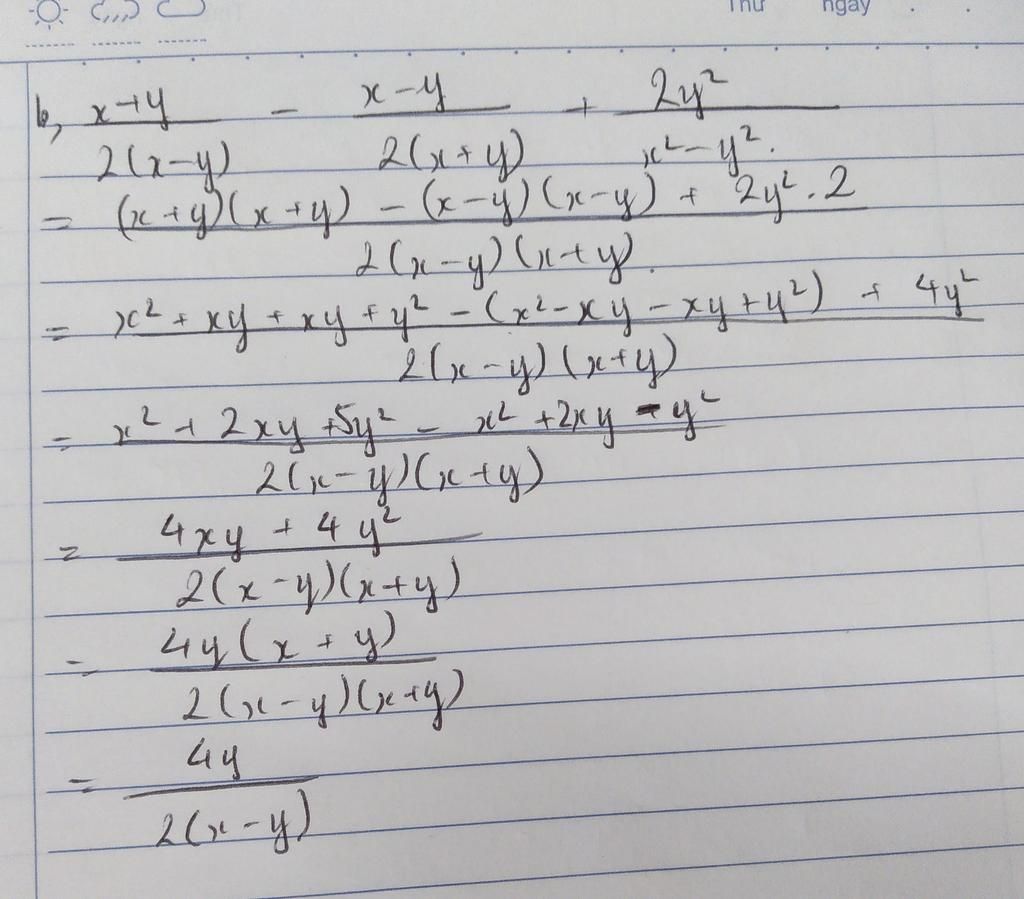 Thứ ngày . .
b, x+y / 2(x-y) - x-y / 2(x+y) + 2y² / x²-y².
= (x+y)(x+y) - (x-y)(x-y) + 2y².2 / 2(x-y)(x+y).
= x² + xy + xy + y² - (x²-xy-xy+y²) + 4y² / 2(x-y)(x+y)
= x² + 2xy +5y² - x² +2xy - y² / 2(x-y)(x+y)
= 4xy + 4y² / 2(x-y)(x+y)
= 4y(x+y) / 2(x-y)(x+y)
= 4y / 2(x-y)